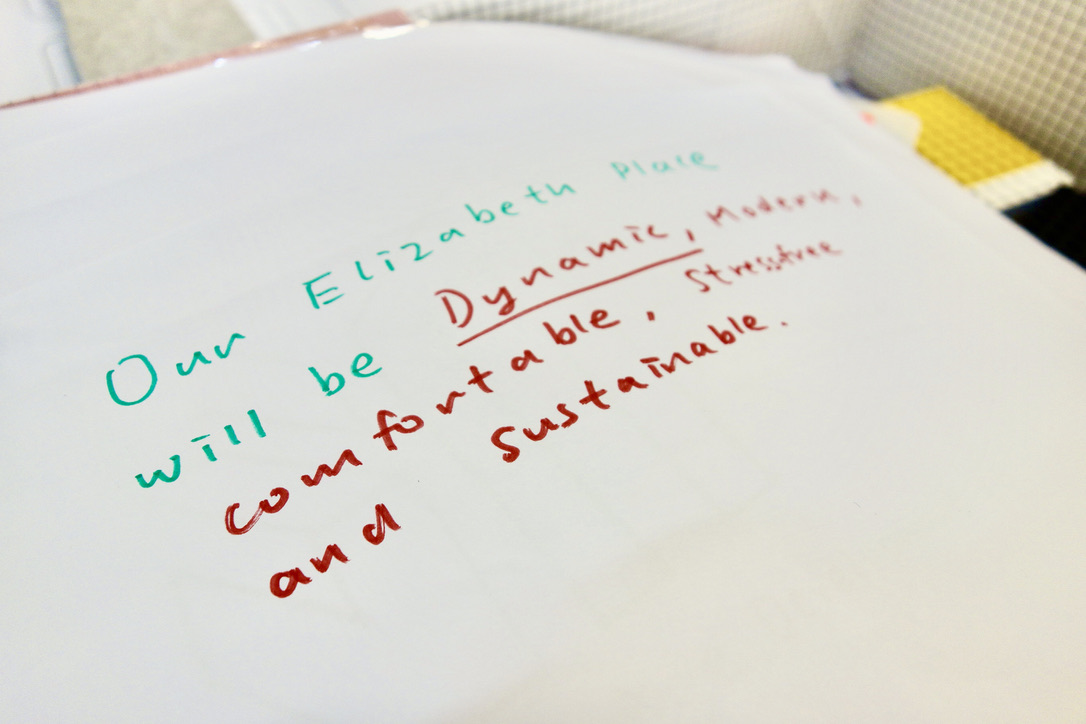 Our Elizabeth Place
will be Dynamic, Modern,
comfortable, stressfree
and sustainable.